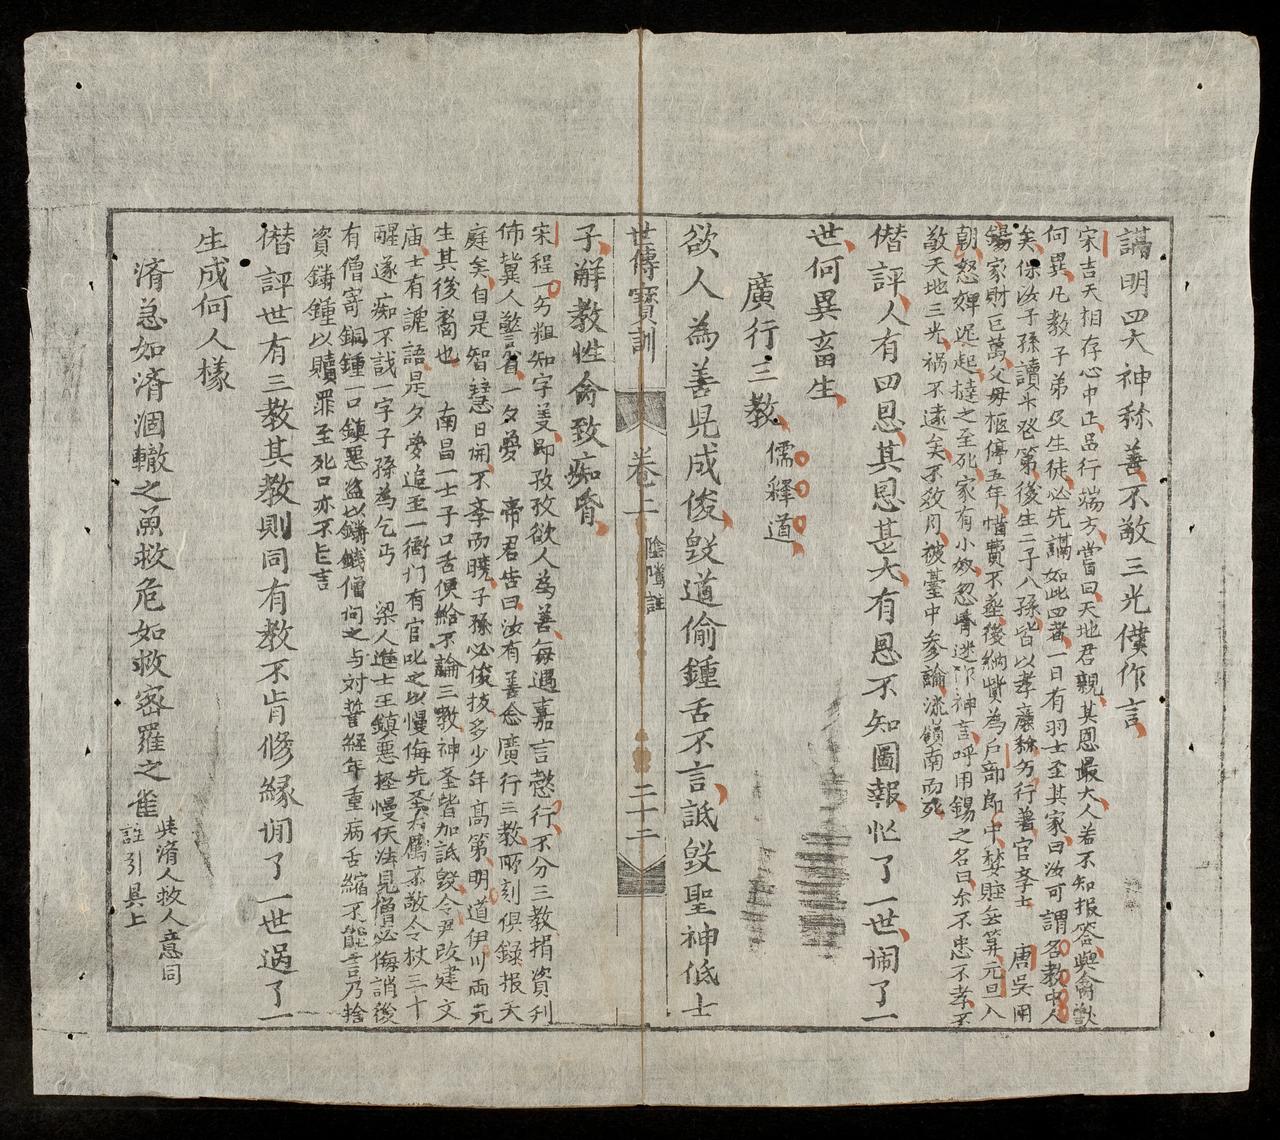 謁明四大神稱善不敬三光僕作言
宋吉天相存心中正品行端方嘗曰天地君親其恩最大人若不知报答與禽獸
何異凡教子弟及生徒必先謁如此四者一日有羽士至其家曰汝可謂名教中人
矣保汝子孫讀半登第後生二子八孫皆以孝廉稱 唐吳用
錫家財巨萬父母柩停五年惜費不葬後納貲為戶部郎中元旦入
朝怒婢泥起撻之至死家有小奴忽作神言呼用錫之名曰尔不忠不孝不
敬天地三光禍不遠矣不数月被臺中參論流嶺南而死
僣評人有四恩其恩甚大有恩不知圖報忙了一世閙了一
世何異畜生
廣行三教 儒釋道
欲人為善見成俊毀道偷鍾舌不言詆毀聖神低士
世傳寶訓 卷二 陰騭註 二十二
子觧教性禽致痴昬
宋程一方粗知字義即孜孜欲人為善每遇嘉言懿行不分三教捐資刋
佈冀人警省一夕夢 帝君告曰汝有善念廣行三教所刻俱録报天
庭矣自是智慧日開不斈而曉子孫必俊技多少年高第明道伊川両元
生其後裔也 南昌一士子口舌便給不論三教神圣皆加詆毀令尹改建文
庙士有謔語是夕夢追至一衙门有官叱之以慢侮先圣令杖三十
醒遂痴不識一字子孫為乞丐 梁人進士王鎮惡輕慢仸法見僧必侮誚後
有僧寄銅鍾一口鎮惡盗以鑄錢僧问之与对誓経年重病舌縮不能言乃捨
資鑄鍾以贖罪至死口亦不能言
僣評世有三教其教則同有教不肯修緣閙了一世過了一
生成何人樣
濟急如濟涸轍之魚救危如救密羅之雀
與濟人救人意同
註引具上